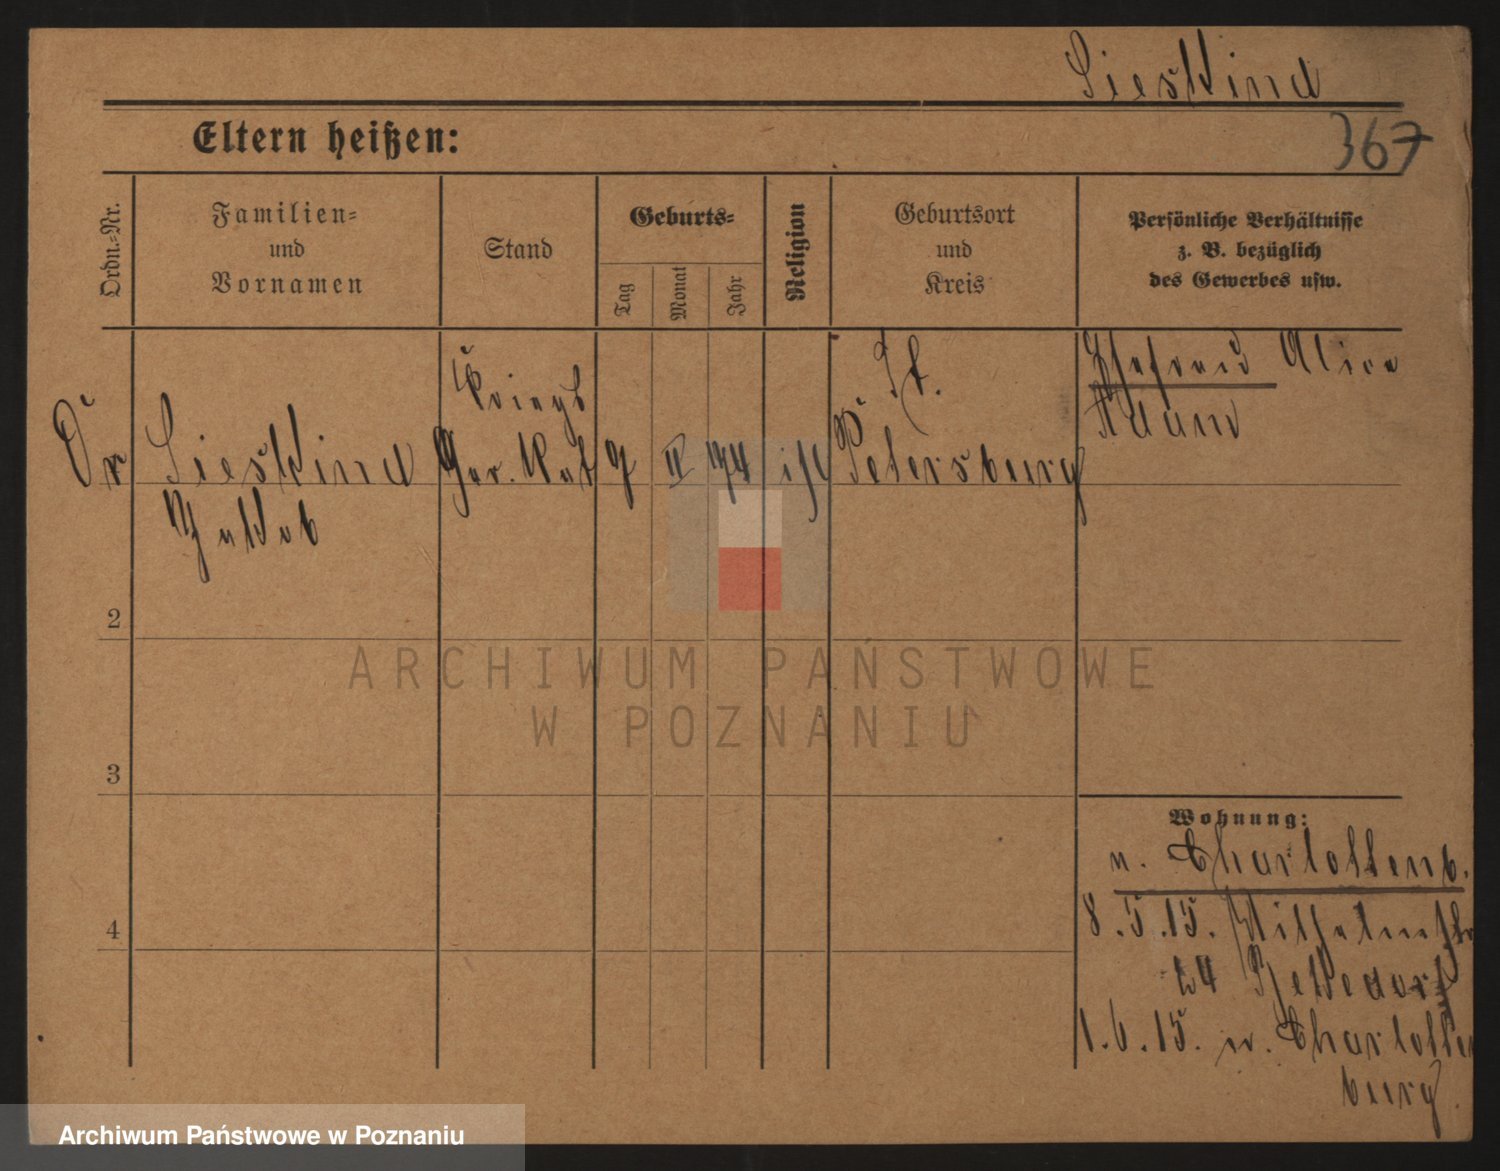 Lieskind
367
Eltern heißen:
Ordn.-Nr.
Familien-
und
Vornamen
Stand
Geburts-
Tag
Monat
Jahr
Religion
Geburtsort
und
Kreis
Persönliche Verhältnisse
z. B. bezüglich
des Gewerbes usw.
Dr Lieskind
Jakob
Kriegs
Ger. Rat
9 II 74 isr
St.
Petersburg
Ehefrau Alice
2
3
4
Wohnung:
n. Charlottenb.
8.5.15. Wilhelmstr
1.6.15. n. Charlotten
burg
ARCHIWUM PAŃSTWOWE
W POZNANIU
Archiwum Państwowe w Poznaniu